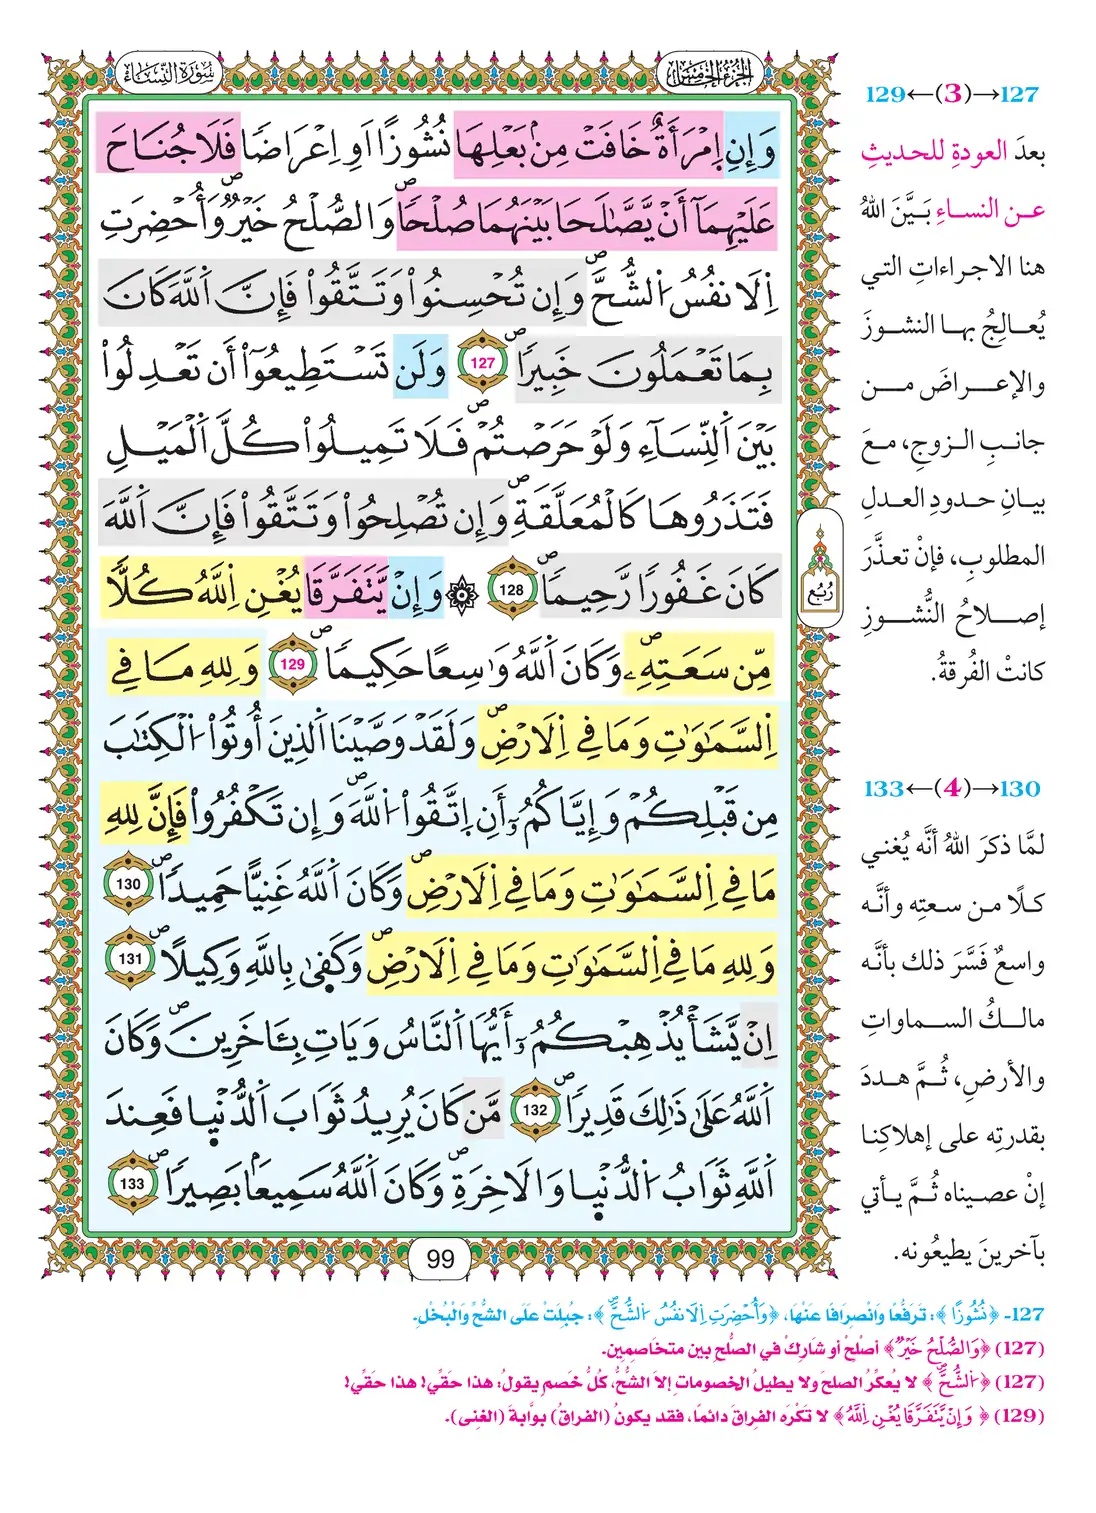 سُورَةُ النِّسَاءِ
الجُزْءُ الخَامِسُ
وَإِنِ اِمْرَأَةٌ خَافَتْ مِنۢ بَعْلِهَا نُشُوزًا اَوِ اِعْرَاضًا فَلَا جُنَاحَ
عَلَيْهِمَآ أَنْ يَّصَّٰلَحَا بَيْنَهُمَا صُلْحًا وَالصُّلْحُ خَيْرٌ وَأُحْضِرَتِ
اِلَانفُسُ الشُّحَّ وَإِن تُحْسِنُواْ وَتَتَّقُواْ فَإِنَّ اَللَّهَ كَانَ
بِمَا تَعْمَلُونَ خَبِيرًا 127 وَلَن تَسْتَطِيعُوٓاْ أَن تَعْدِلُواْ
بَيْنَ اَلنِّسَآءِ وَلَوْ حَرَصْتُمْ فَلَا تَمِيلُواْ كُلَّ اَلْمَيْلِ
فَتَذَرُوهَا كَالْمُعَلَّقَةِ وَإِن تُصْلِحُواْ وَتَتَّقُواْ فَإِنَّ اَللَّهَ
كَانَ غَفُورًا رَّحِيمًا 128 ۞ وَإِنْ يَّتَفَرَّقَا يُغْنِ اِللَّهُ كُلًّا
مِّن سَعَتِهِۦ وَكَانَ اَللَّهُ وَٰسِعًا حَكِيمًا 129 وَلِلهِ مَا فِي
اِلسَّمَٰوَٰتِ وَمَا فِي اِلَارْضِ وَلَقَدْ وَصَّيْنَا اَلذِينَ أُوتُواْ اُلْكِتَٰبَ
مِن قَبْلِكُمْ وَإِيَّاكُمُۥٓ أَنِ اِتَّقُواْ اُللَّهَ وَإِن تَكْفُرُواْ فَإِنَّ لِلهِ
مَا فِي اِلسَّمَٰوَٰتِ وَمَا فِي اِلَارْضِ وَكَانَ اَللَّهُ غَنِيًّا حَمِيدًا 130
وَلِلهِ مَا فِي اِلسَّمَٰوَٰتِ وَمَا فِي اِلَارْضِ وَكَفىٰ بِاللَّهِ وَكِيلًا 131
اِنْ يَّشَأْ يُذْهِبْكُمُۥٓ أَيُّهَا اَلنَّاسُ وَيَاتِ بِـَٔاخَرِينَ وَكَانَ
اَللَّهُ عَلَىٰ ذَٰلِكَ قَدِيرًا 132 مَّن كَانَ يُرِيدُ ثَوَابَ اَلدُّنْيا فَعِندَ
اَللَّهِ ثَوَابُ اُلدُّنْيا وَالَاخِرَةِ وَكَانَ اَللَّهُ سَمِيعَاۢ بَصِيرًا 133
رُبُع
99
127→(3)←129
بعدَ العودةِ للحديثِ
عن النساءِ بَيَّنَ اللهُ
هنا الاجراءاتِ التي
يُعالِجُ بها النشوزَ
والإعراضَ من
جانبِ الزوجِ، معَ
بيانِ حدودِ العدلِ
المطلوبِ، فإنْ تعذَّرَ
إصلاحُ النُّشوزِ
كانتْ الفُرقةُ.
130→(4)←133
لمَّا ذكرَ اللهُ أنَّه يُغني
كلًا من سعتِه وأنَّه
واسعٌ فَسَّرَ ذلك بأنَّه
مالكُ السماواتِ
والأرضِ، ثُمَّ هددَ
بقدرتِه على إهلاكِنا
إنْ عصيناه ثُمَّ يأتي
بآخرينَ يطيعُونه.
127- ﴿نُشُوزًا﴾: تَرَفُّعًا وَانْصِرَافًا عَنْهَا، ﴿وَأُحْضِرَتِ اِلَانفُسُ اُلشُّحَّ﴾: جُبِلَتْ عَلَى الشُّحِّ وَالْبُخْلِ.
(127) ﴿وَالصُّلْحُ خَيْرٌ﴾ أصْلِحْ أو شَارِكْ في الصُّلحِ بين متخَاصِمِين.
(127) ﴿اُلشُّحَّ﴾ لا يُعكِّرُ الصلحَ ولا يطيلُ الخصوماتِ إلا الشُّحُّ، كُلُّ خصمٍ يقولُ: هذا حقِّي! هذا حقِّي!
(129) ﴿وَإِنْ يَّتَفَرَّقَا يُغْنِ اِللَّهُ﴾ لا تَكْرَه الفراقَ دائمًا، فقد يكونُ (الفراقُ) بوَّابةَ (الغِنى).